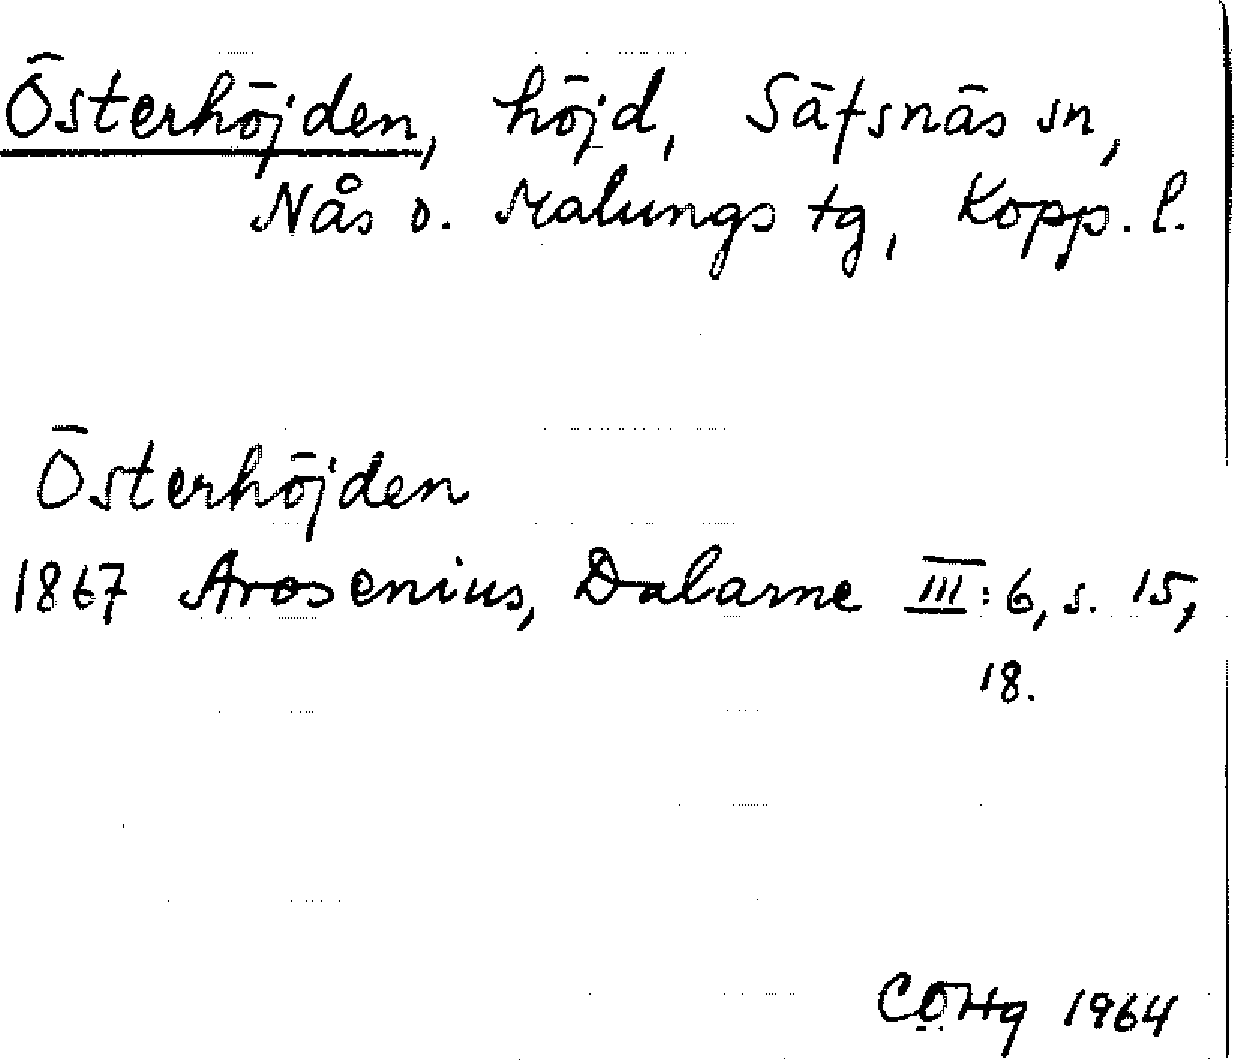 Österhöjden, höjd, Säfsnäs sn,
Nås o. Malungs tg, Kopp. l.
Österhöjden
1867 Arosenius, Dalarne III: 6, s. 15,
18.
CÖHg 1964